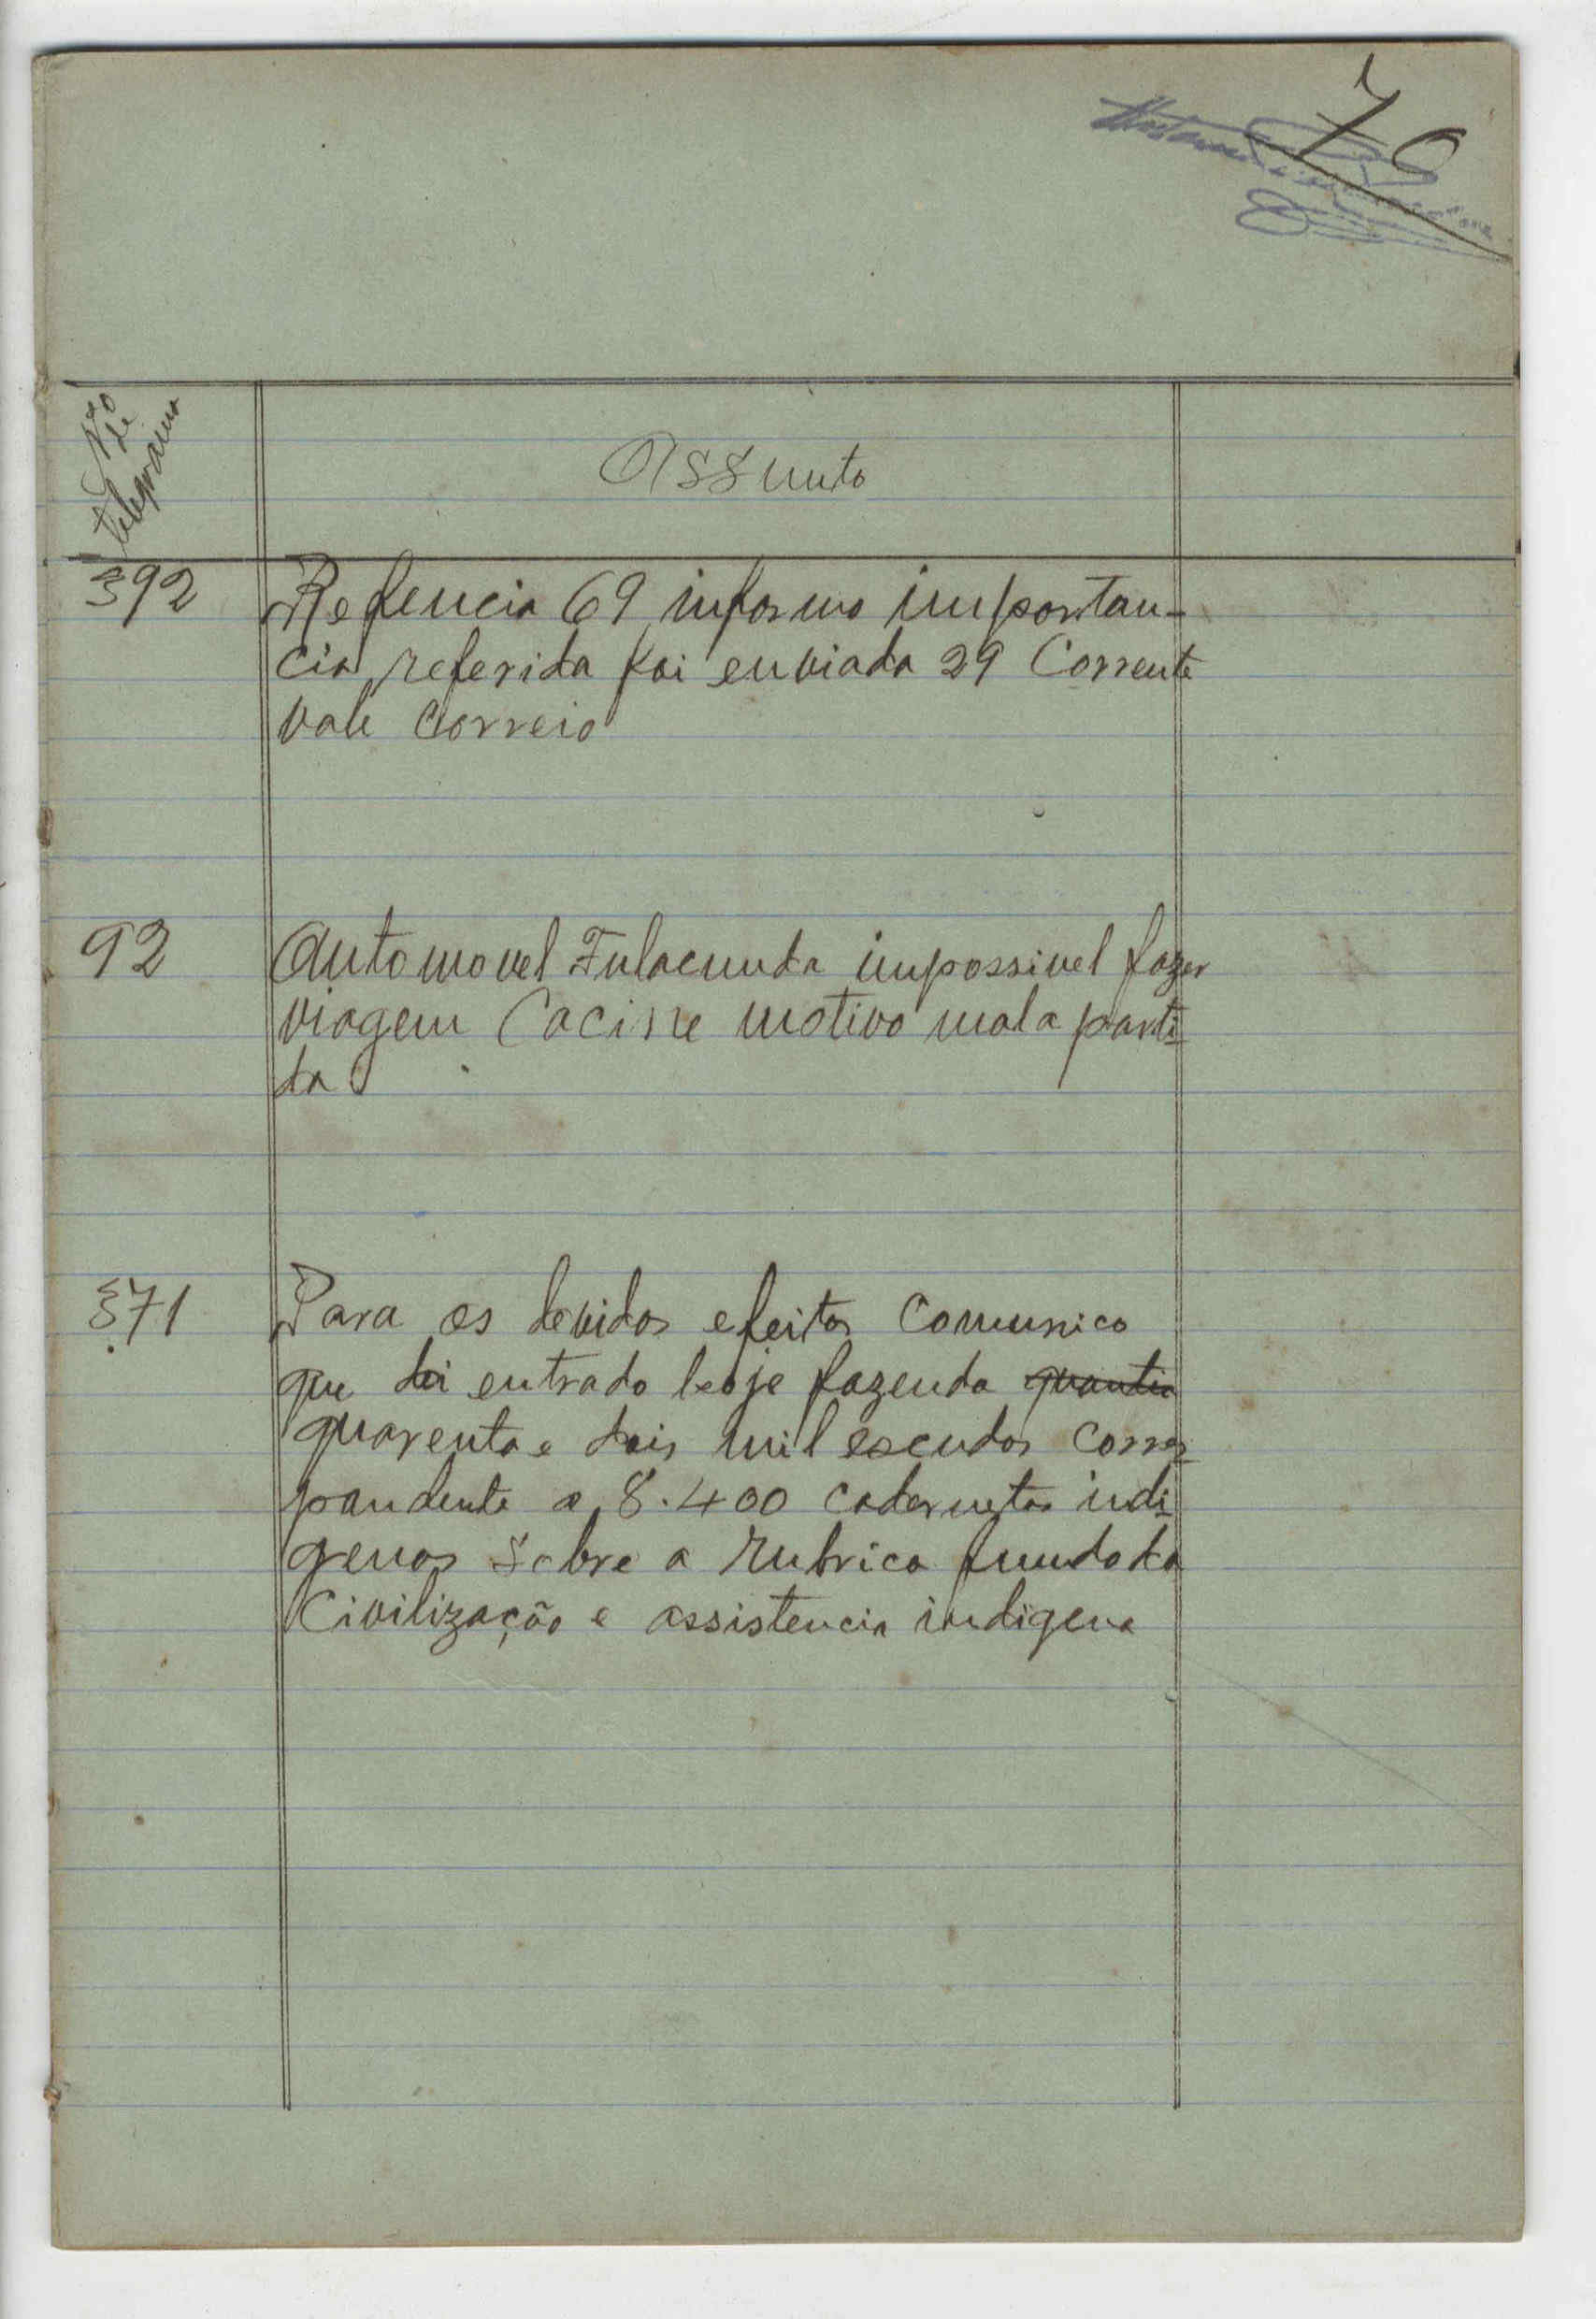 70
Nº
de
telegrama
Assunto
392
Refencia 69 informo importan-
cia referida foi enviada 29 Corrente
vale Correio
92
Automovel Fulacunda impossivel fazer
viagem Cacine motivo mola parti-
da
371
Para os devidos efeitos Comunico
que dei entrado hoje fazenda quantia
quarenta e dois mil escudos corres-
pondente a 8.400 cadernetas indi-
genas sobre a rubrica fundo da
Civilização e assistencia indigena